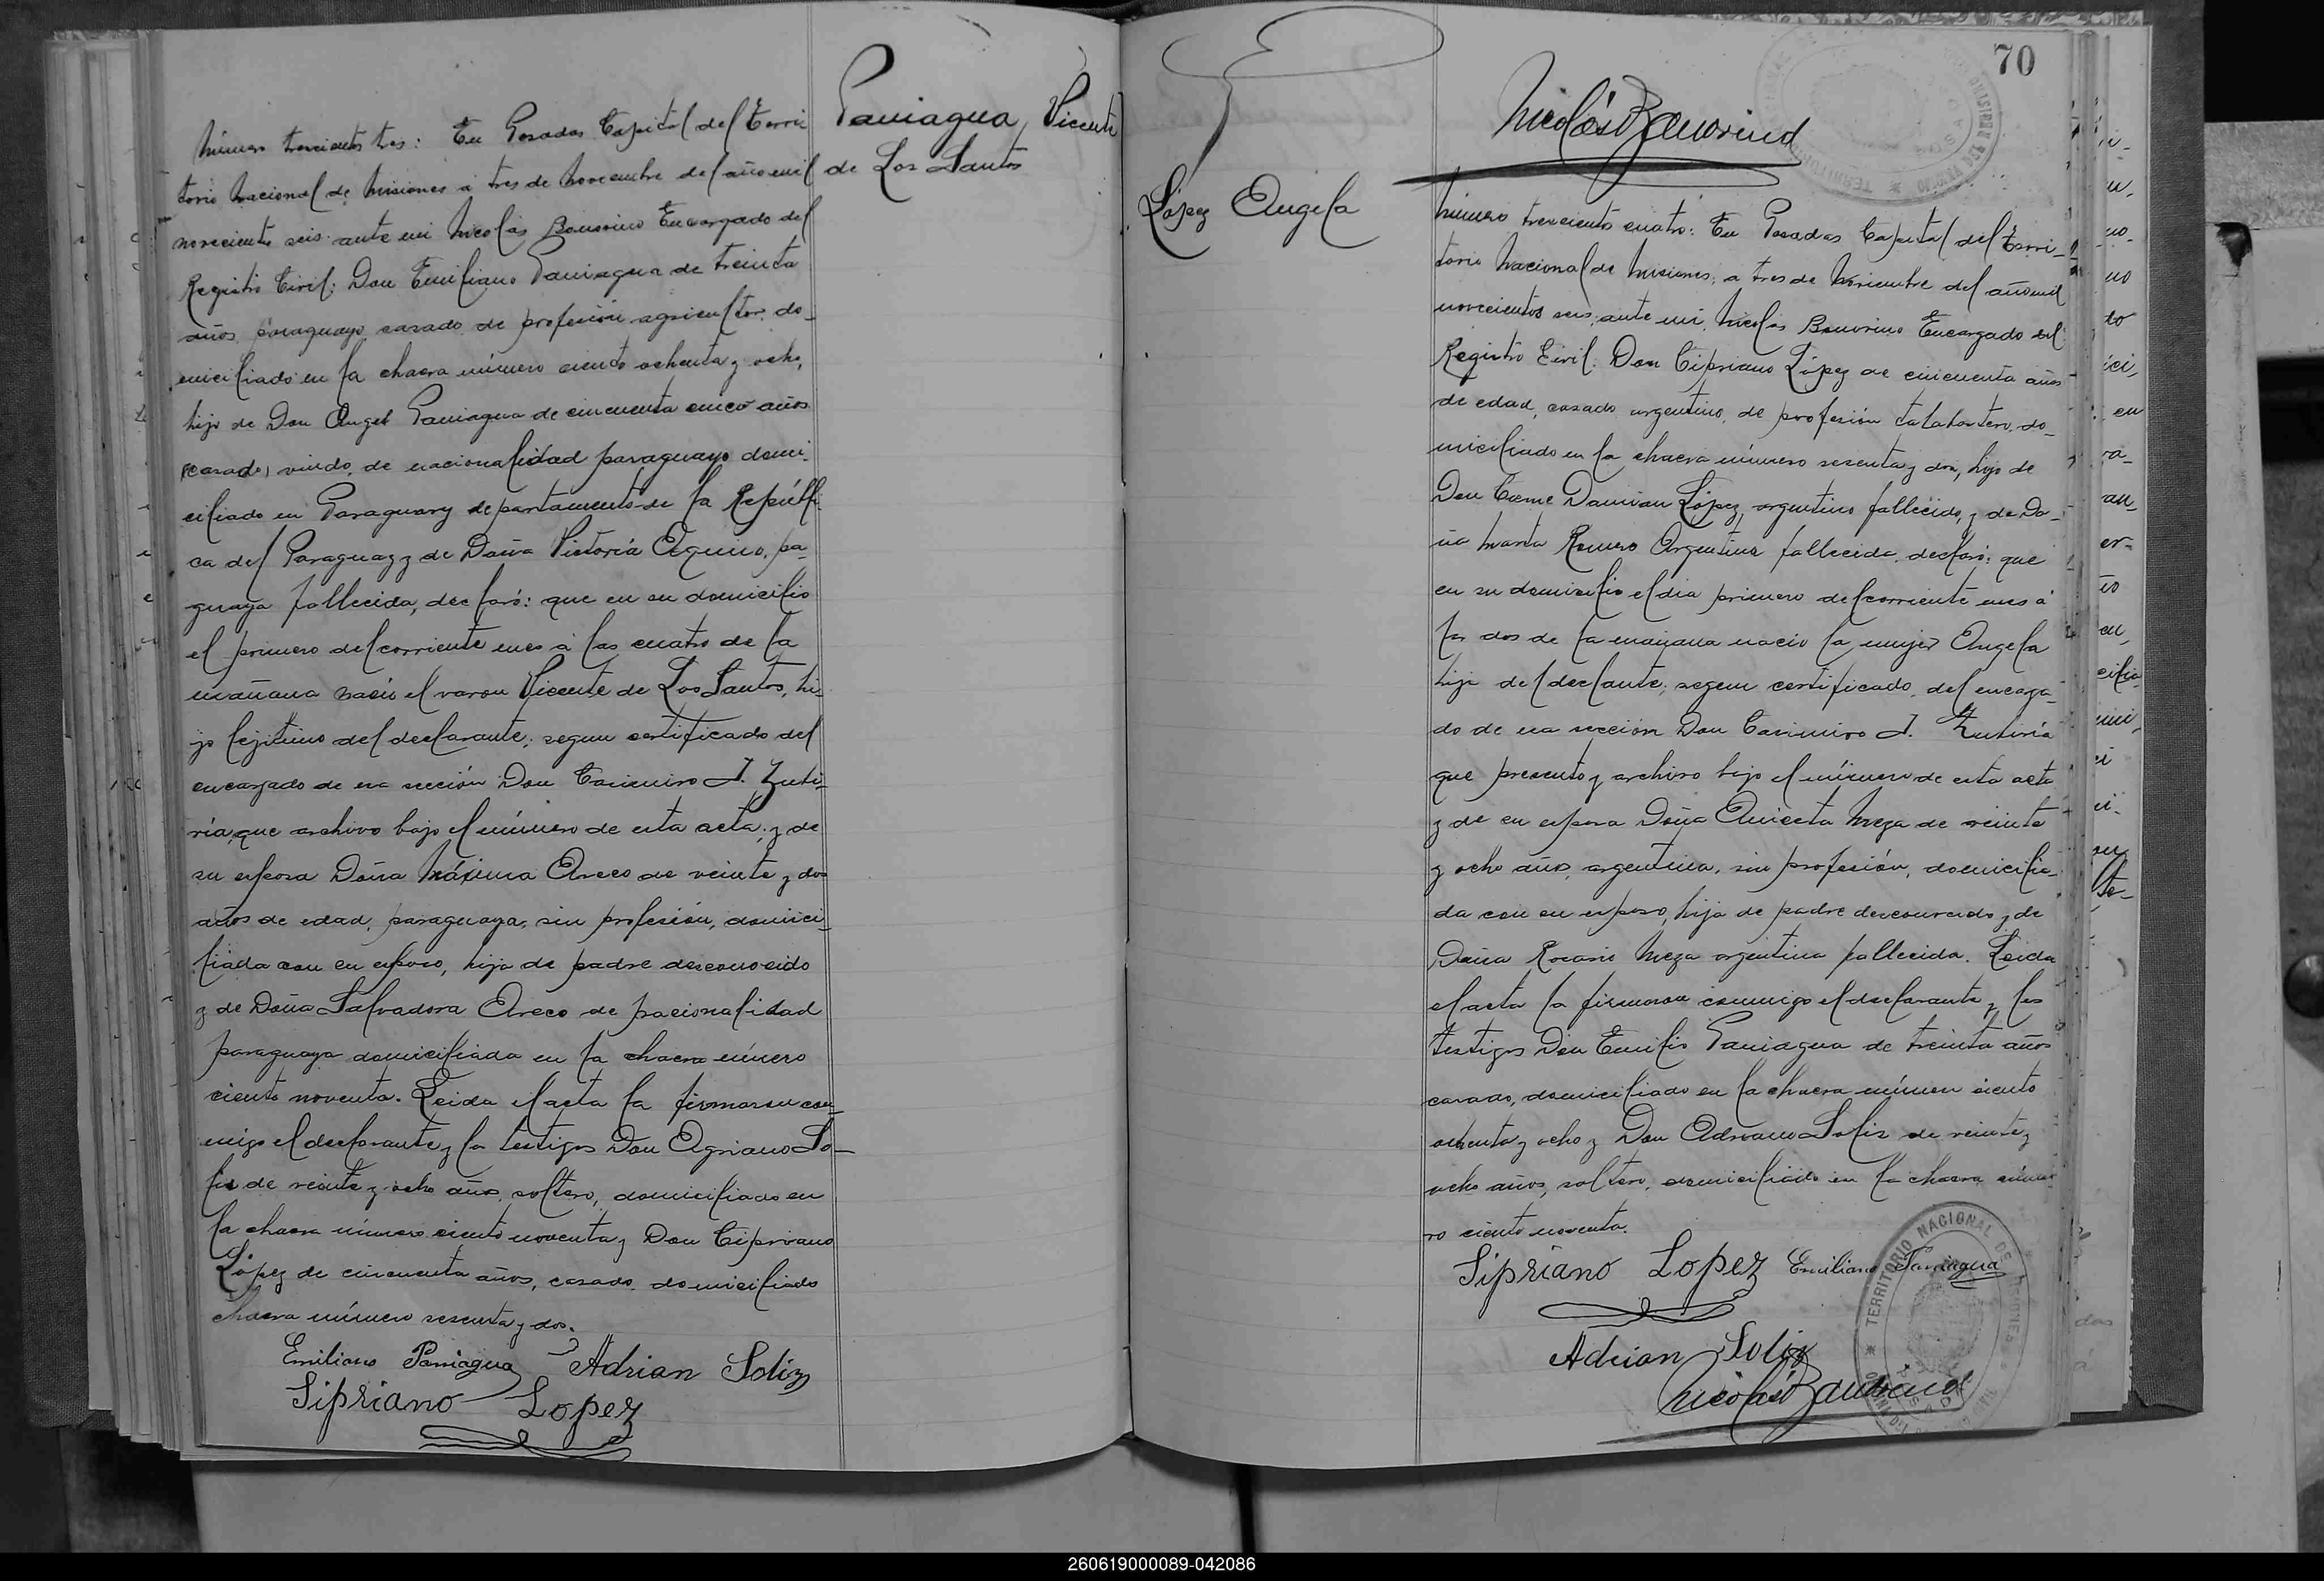 Número trescientos tres: En Posadas Capital del Terri
torio Nacional de Misiones á tres de Noviembre del año mil
novecientos seis ante mi Nicolás Bonorino Encargado del
Registro Civil: Don Emiliano Paniagua de treinta
años, paraguayo, casado, de profesión agricultor, do_
miciliado en la chacra número ciento ochenta y ocho,
hijo de Don Angel Paniagua de cincuenta cinco años
(casado) viudo, de nacionalidad paraguayo domi_
ciliado en Paraguary departamento de la Repúbli_
ca del Paraguay y de Doña Victoria Aquino, pa_
guaya fallecida, declaró: que en su domicilio
el primero del corriente mes á las cuatro de la
mañana nació el varon Vicente de Los Santos, hi_
jo lejitimo del declarante; segun certificado del
encargado de esa sección Don Casimiro J. Zubi_
ría, que archivo bajo el número de esta acta; y de
su esposa Doña Máxima Areco de veinte y dos
años de edad, paraguaya, sin profesión, domici_
liada con su esposo, hija de padre desconocido
y de Doña Salvadora Areco de nacionalidad
paraguaya domiciliada en la chacra número
ciento noventa. Leida el acta la firmaron con_
migo el declarante y los testigos Don Agriano So_
lis de veinte y ocho años, soltero, domiciliado en
la chacra número ciento noventa y Don Cipriano
López de cincuenta años, casado, domiciliado
chacra número sesenta y dos.
Emiliano Paniagua Adrian Soliz
Sipriano Lopez
Paniagua, Vicente
de Los Santos
70
Nicolás Bonorino
López Angela
Número trescientos cuatro: En Posadas Capital del Terri_
torio Nacional de Misiones, a tres de Noviembre del año mil
novecientos seis, ante mi, Nicolás Bonorino Encargado del
Registro Civil: Don Cipriano López de cincuenta años
de edad, casado, argentino, de profesión talabartero, do_
miciliado en la chacra número sesenta y dos, hijo de
Don Cosme Damian López, argentino fallecido, y de Do_
ña Marta Romero Argentina fallecida, declaró: que
en su domicilio el dia primero del corriente mes á
las dos de la mañana nació la mujer Angela
hija del declante; segun certificado, del encarga_
do de esa sección Don Casimiro J. Zubiría
que presento y archivo bajo el número de esta acta
y de su esposa Doña Aniceta Meza de veinte
y ocho años, argentina, sin profesión, domicilia_
da con su esposo, hija de padre desconocido y de
Doña Rosario Meza argentina fallecida. Leida
el acta la firmaron conmigo el declarante y los
testigos Don Emilio Paniagua de treinta años
casado, domiciliado en la chacra número ciento
ochenta y ocho y Don Adriano Solis de veinte y
ocho años, soltero, domiciliado en la chacra núme
ro ciento noventa.
Sipriano Lopez Emiliano Paniagua
Adrian Soliz
Nicolás Bonorino
TERRITORIO NACIONAL DE MISIONES
260619000089-042086